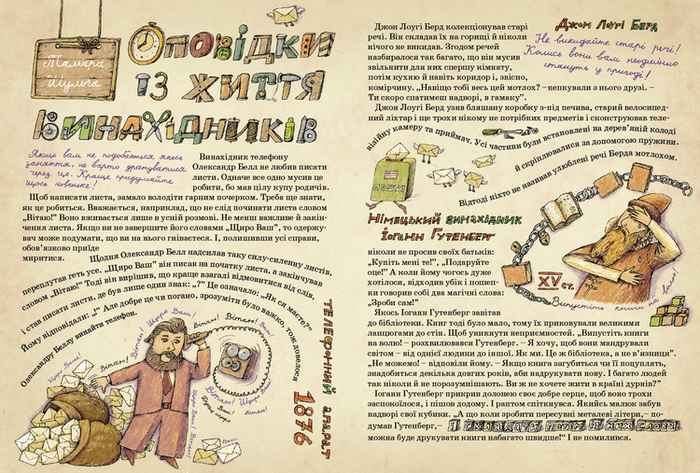 Тамара
Шульга
Оповідки
із життя
винахідників
Якщо вам не подобається якесь
заняття, не варто дратуватися
через це. Краще придумайте
щось новеньке!
Винахідник телефону
Олександр Белл не любив писати
листи. Одначе все одно мусив це
робити, бо мав цілу купу родичів.
Щоб написати листа, замало володіти гарним почерком. Треба ще знати,
як це робиться. Вважається, наприклад, що не слід починати листа словом
„Вітаю!" Воно вживається лише в усній розмові. Не менш важливе й закін-
чення листа. Якщо ви не завершите його словами „Щиро Ваш", то одержу-
вач може подумати, що ви на нього гніваєтеся. І, полишивши усі справи,
обов'язково приїде
миритися.
Щодня Олександр Белл надсилав таку силу-силенну листів,
переплутав геть усе. „Щиро Ваш" він писав на початку листа, а закінчував
словом „Вітаю!" Тоді він вирішив, що краще взагалі відмовитися від слів,
і став писати листи, де був лише один знак: „?" Це означало: „Як ся маєте?"
Йому відповідали: „!" Але добре це чи погано, зрозуміти було важко, тож довелося
Олександру Беллу винайти телефон.
Вітаю! Щиро Ваш!
Вітаю!
Вітаю!
Щиро Ваш!
Вітаю!
Телефонний апарат
1876
Джон Лоугі Берд
Не викидайте старі речі!
Колись вони вам неодмінно
стануть у пригоді!
Джон Лоугі Берд колекціонував старі
речі. Він складав їх на горищі й ніколи
нічого не викидав. Згодом речей
назбиралося так багато, що він мусив
звільнити для них спершу кімнату,
потім кухню й навіть коридор і, звісно,
комірчину. „Навіщо тобі весь цей мотлох? – кепкували з нього друзі. –
Ти скоро спатимеш надворі, в гамаку".
Джон Лоугі Берд узяв бляшану коробку з-під печива, старий велосипед-
ний ліхтар і ще трохи нікому не потрібних предметів і сконструював теле-
візійну камеру та приймач. Усі частини були встановлені на дерев'яній колоді
й скріплювалися за допомогою пружини.
Відтоді ніхто не називав улюблені речі Берда мотлохом.
пошта
Німецький винахідник
Іоганн Гутенберг
ніколи не просив своїх батьків:
„Купіть мені те!", „Подаруйте
оце!" А коли йому чогось дуже
хотілося, відходив убік і пошеп-
ки говорив собі два магічні слова:
„Зроби сам!"
XV
ст.
Випустіть книги на волю!
Якось Іоганн Гутенберг завітав
до бібліотеки. Книг тоді було мало, тому їх приковували великими
ланцюгами до стін. Щоб уникнути неприємностей. „Випустіть книги
на волю! – розхвилювався Гутенберг. – Я хочу, щоб вони мандрували
світом – від однієї людини до іншої. Як ми. Це ж бібліотека, а не в'язниця".
„Не можемо! – відповіли йому. – Якщо книга загубиться чи її поцуплять,
знадобиться декілька довгих років, аби надрукувати нову. І багато людей
так ніколи й не порозумнішають. Ви ж не хочете жити в країні дурнів?"
Іоганн Гутенберг прикрив долонею своє добре серце, щоб воно трохи
заспокоїлося, і пішов додому. І раптом спіткнувся. Якийсь малюк забув
надворі свої кубики. „А що коли зробити пересувні металеві літери, – по-
думав Гутенберг, – і складати потім із них слова?
можна буде друкувати книги набагато швидше!" І не помилився.